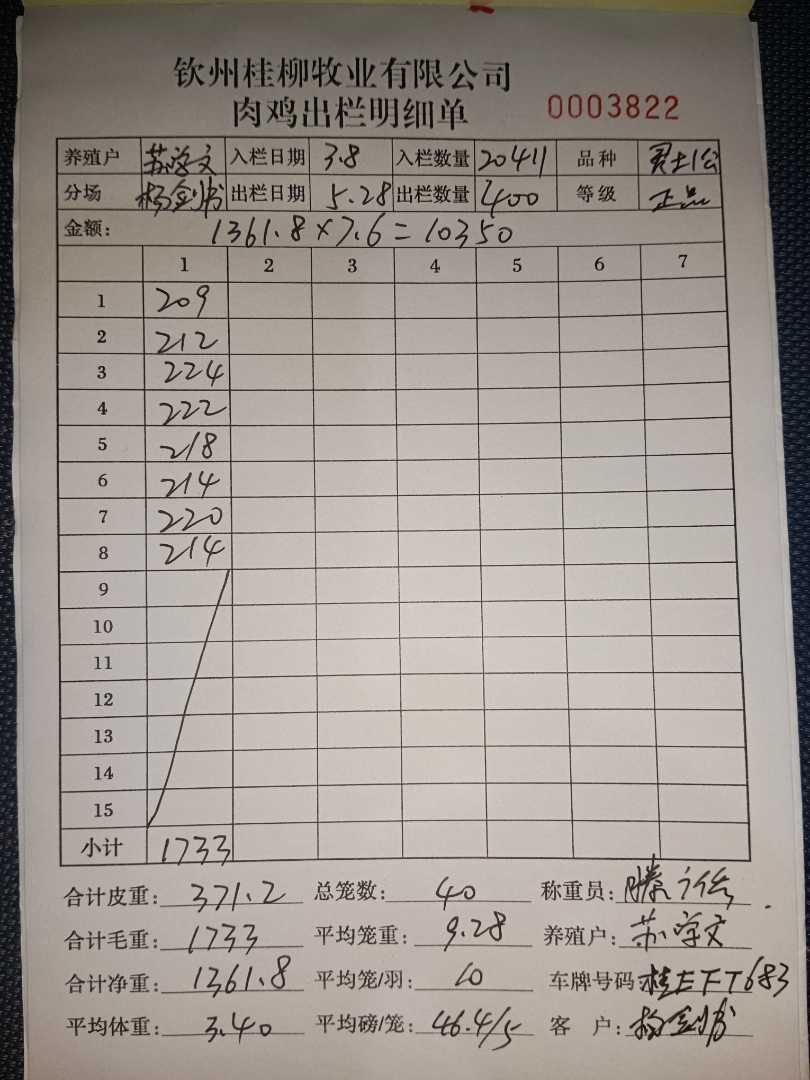 钦州桂柳牧业有限公司
肉鸡出栏明细单 0003822
养殖户 苏学文 入栏日期 3.8 入栏数量 20411 品种 土公
分场 杨剑 出栏日期 5.28 出栏数量 400 等级 正品
金额: 1361.8×7.6=10350
1 2 3 4 5 6 7
1 209
2 212
3 224
4 222
5 218
6 214
7 220
8 214
9
10
11
12
13
14
15
小计 1733
合计皮重: 371.2 总笼数: 40 称重员:
合计毛重: 1733 平均笼重: 9.28 养殖户: 苏学文
合计净重: 1361.8 平均笼/羽: 10 车牌号码: 桂EFT683
平均体重: 3.40 平均磅/笼: 46.4/5 客户: 杨剑